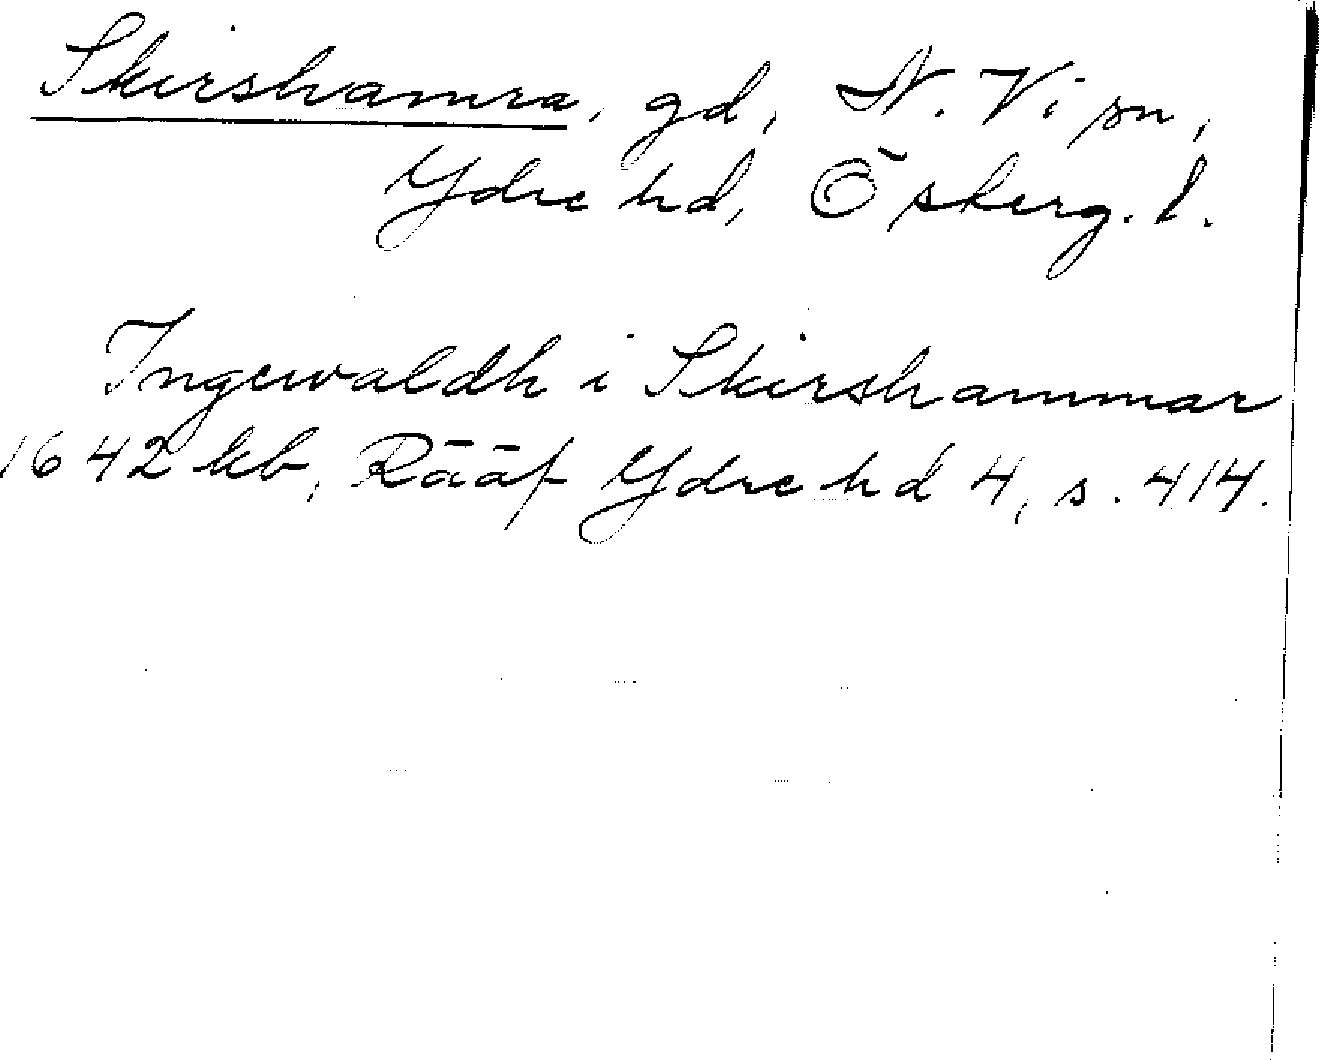 Skirshamra, gd, N. Vi sn,
Ydre hd, Ö skerg. l.
Ingewaldh i Skirshammar
1642 kb, Rääf Ydre hd 4, s. 414.